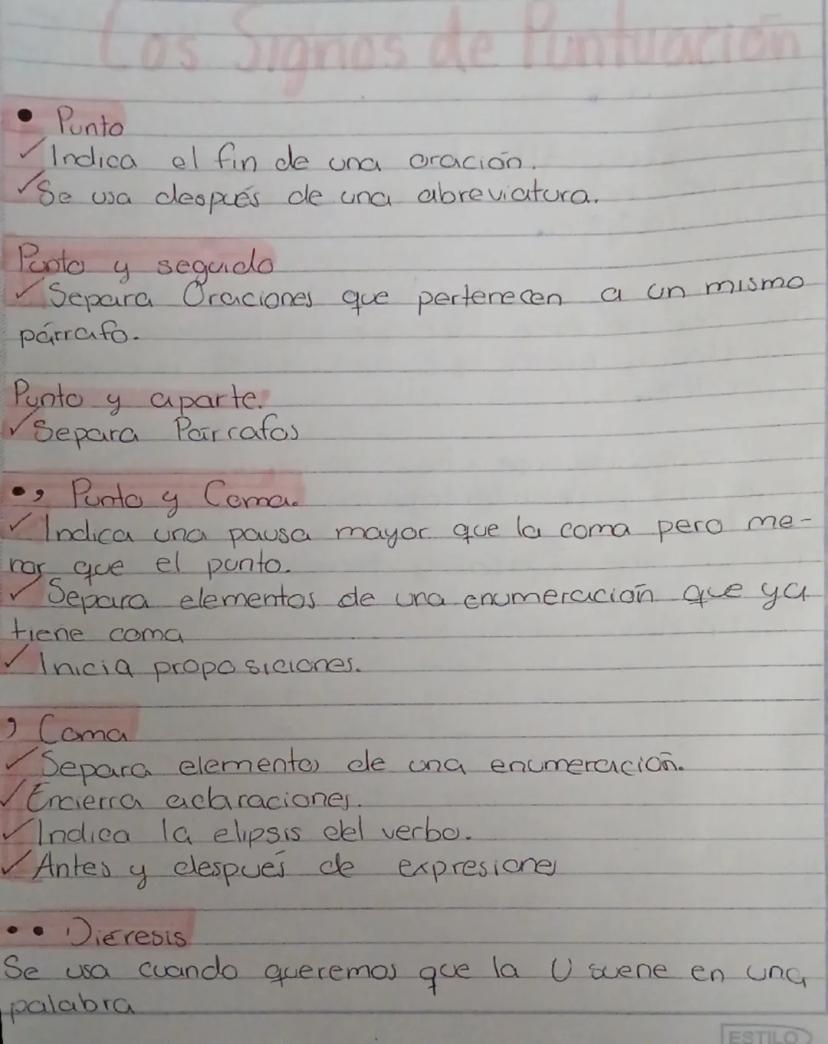 Los Signos de Puntuación
• Punto
✓ Indica el fin de una oración.
✓ Se usa después de una abreviatura.
Punto y seguido
✓ Separa Oraciones que pertenecen a un mismo
párrafo.
Punto y aparte.
✓ Separa Párrafos
•, Punto y Coma.
✓ Indica una pausa mayor que la coma pero me-
nor que el punto.
✓ Separa elementos de una enumeración que ya
tiene coma
✓ Inicia proposiciones.
, Coma
✓ Separa elementos de una enumeración.
✓ Encierra aclaraciones.
✓ Indica la elipsis del verbo.
✓ Antes y después de expresiones
•• Diéresis
Se usa cuando queremos que la U suene en una
palabra
ESTILO